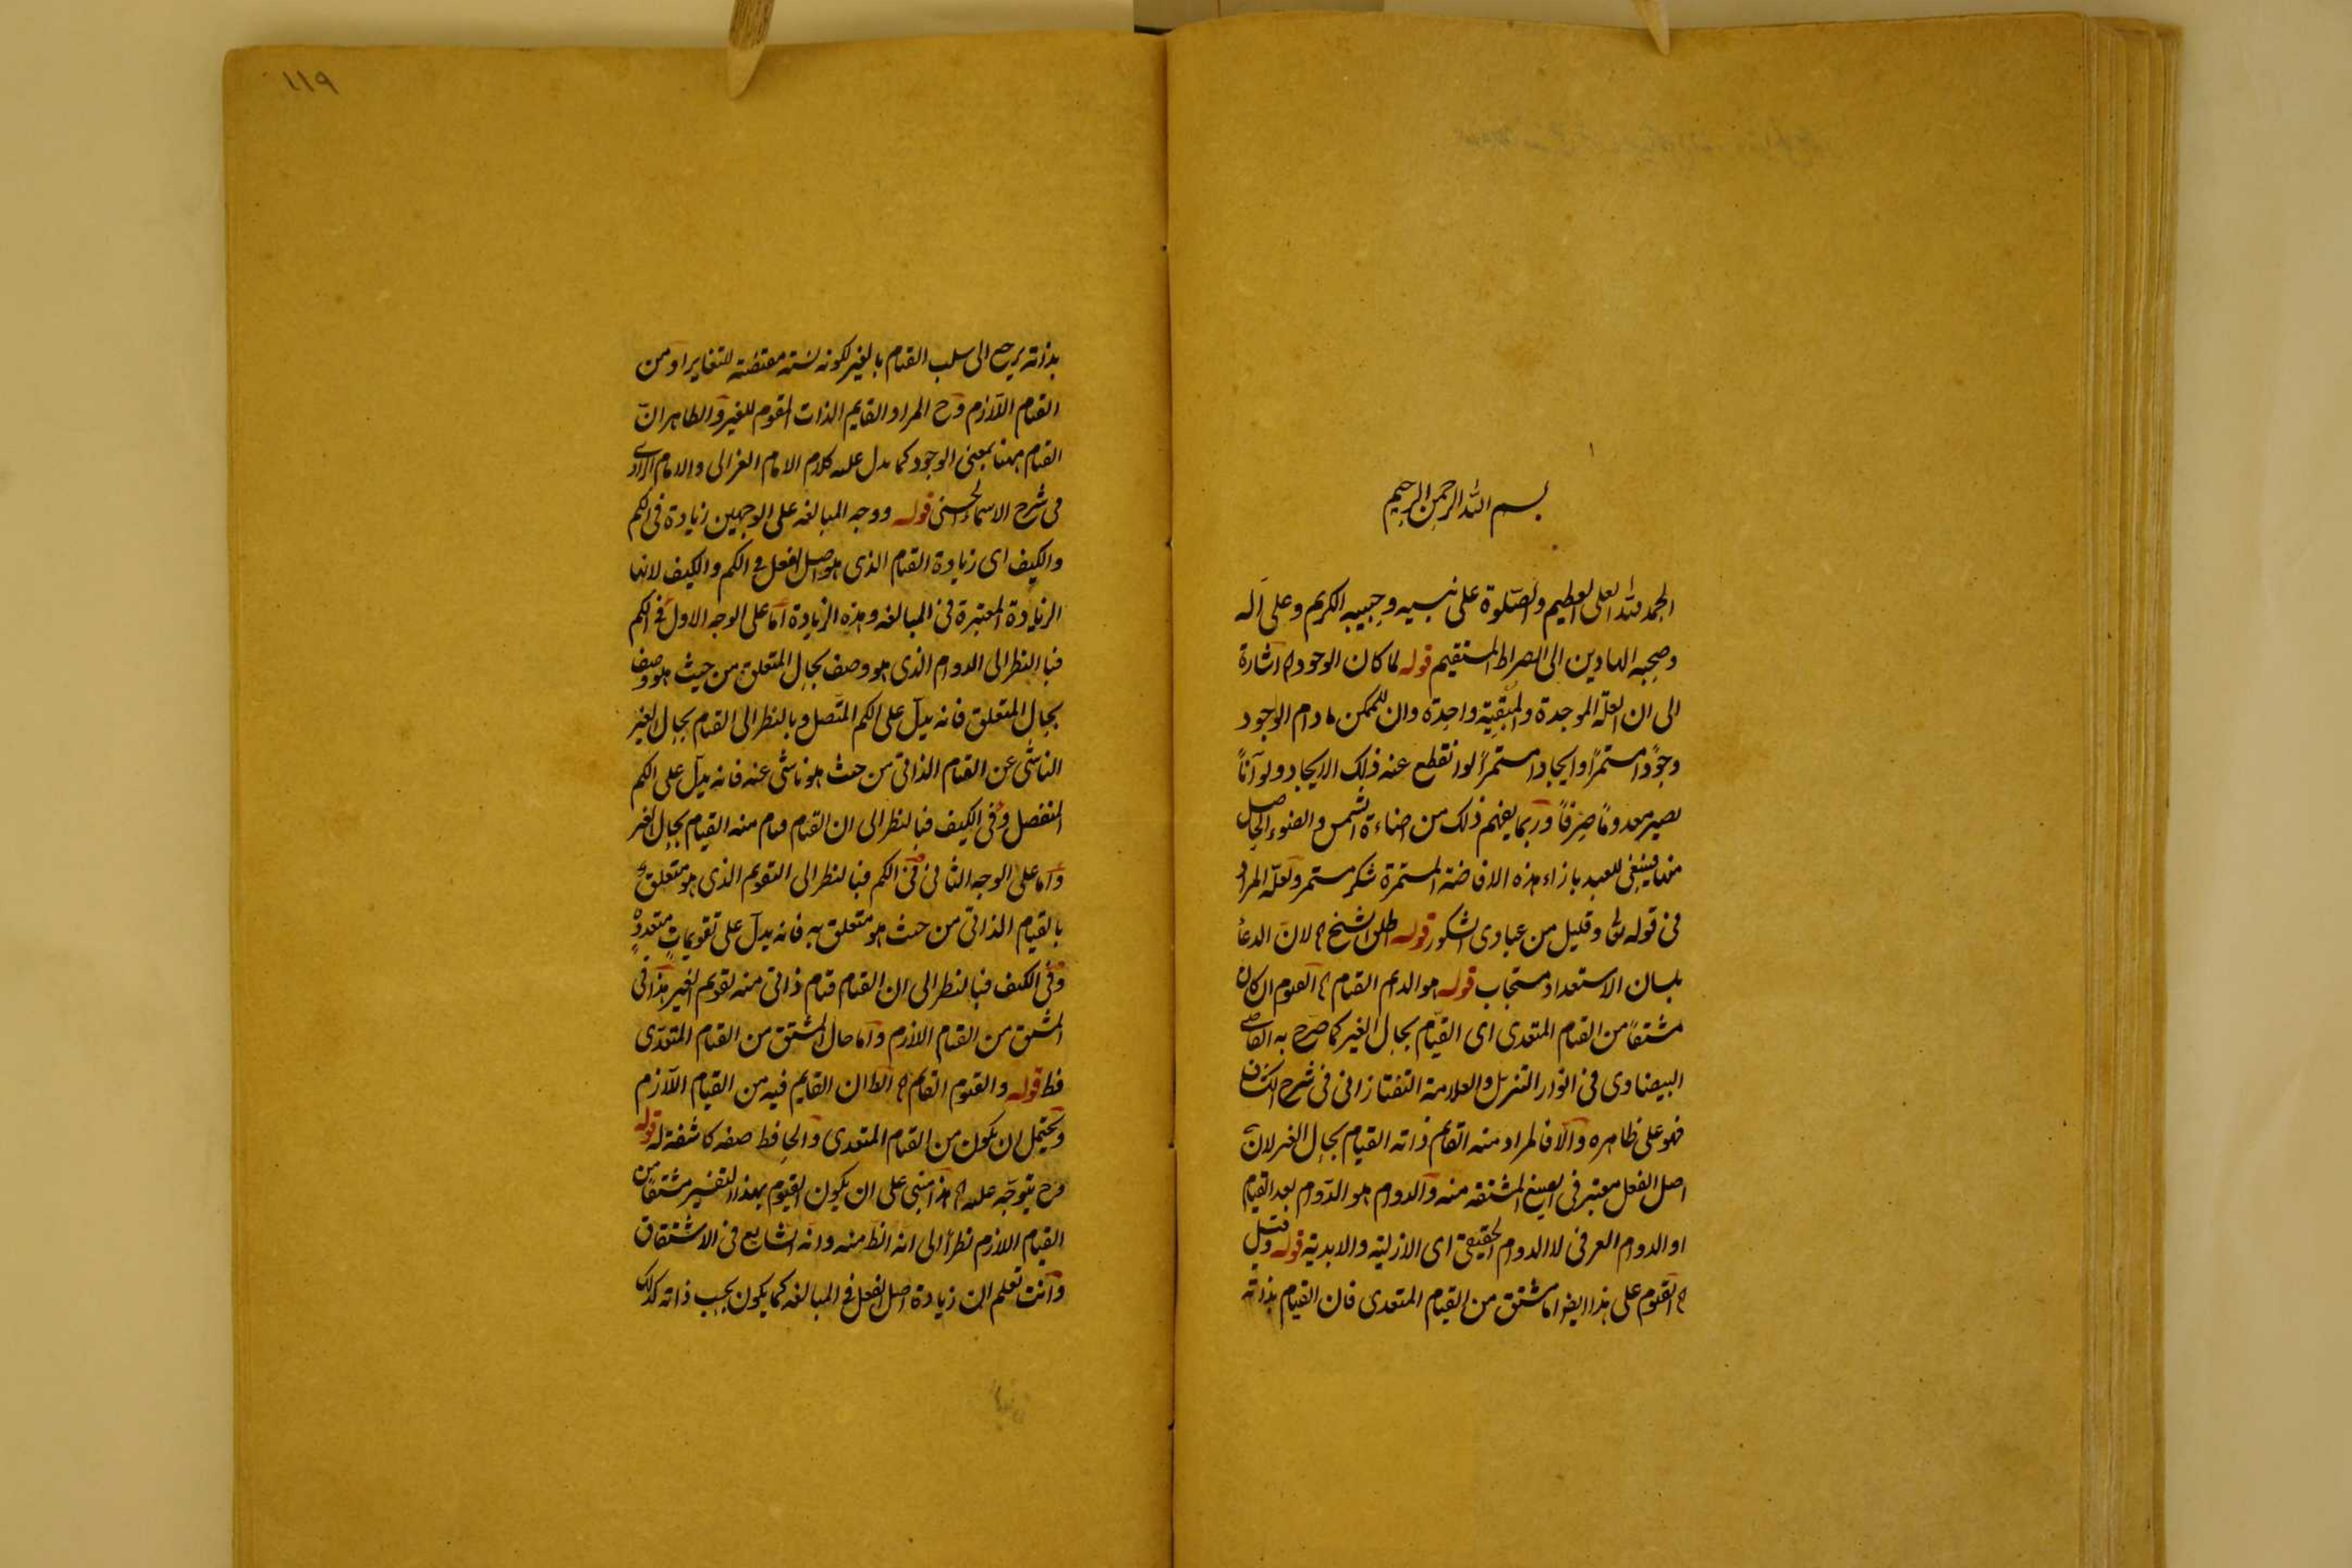 بسم الله الرحمن الرحيم
الحمد لله العلى العظيم والصّلوة على نبيه وحبيبه الكريم وعلى آله
وصحبه الهادين الى الصراط المستقيم قوله لما كان الوجود اه اشارة
الى ان العلّة الموجدة والمبقِيَة واحِدة وان للممكن مادام الوجود
وجودًا مستمرًا وايجادا مستمرًا لو انقطع عنه ذلك الايجاد ولو آناً
يصير معدومًا صِرفاً وربّما يفهم ذلك من اضاءة الشمس والضوء الحاصل
منها فينبغى للعبد بازاء هذه الافاضة المستمرة شكر مستمر ولعلّه المراد
فى قوله تعالى وقليل من عبادى الشكور قوله طلب الشيخ اه لانّ الدعاء
بلسان الاستعداد مستجاب قوله هو الدايم القيام اه القيوم ان كان
مشتقاً من القيام المتعدى اى القيام بحال الغير كما صرّح به القاضى
البيضاوى فى انوار التنزيل والعلامة التفتازانى فى شرح الكشاف
فهو على ظاهره والّا فالمراد منه القايم ذاته القيام بحال الغير لانّ
اصل الفعل معتبر فى الصيغ المشتقه منه والدوام هو الدّوام بعد القيام
او الدوام العرفى لا الدوام الحقيقى اى الازلية والابدية قوله وقيل
اه القيوم على هذا ايضا مشتق من القيام المتعدى فان القيام بذاته
١١٩
بذاته يرجع الى سلب القيام بالغير لكونه نسبة مقتضية للتغاير او من
القيام اللّازم وح المراد القايم الذات المقوم للغير والظاهر انّ
القيام ههنا بمعنى الوجود كما يدل عليه كلام الامام الغزالى والامام الرازى
فى شرح الاسماء الحسنى قوله ووجه المبالغه على الوجهين زيادة فى الكم
والكيف اى زيادة القيام الذى هو اصل الفعل فى الكم والكيف لانها
الزيادة المعتبرة فى المبالغه وهذه الزيادة امّا على الوجه الاول ففى الكم
فبالنظر الى الدوام الذى هو وصف بحال المتعلق من حيث هو وصف
بحال المتعلق فانه يدلّ على الكم المتّصل وبالنظر الى القيام بحال الغير
الناشى عن القيام الذاتى من حيث هو ناشى عنه فانه يدلّ على الكم
المنفصل وفى الكيف فبالنظر الى ان القيام قيام منه القيام بحال الغير
وامّا على الوجه الثانى ففى الكم فبالنظر الى التقويم الذى هو متعلق
بالقيام الذاتى من حيث هو متعلق به فانه يدلّ على تقويماتٍ متعددةٍ
وفى الكيف فبالنظر الى ان القيام قيام ذاتى منه تقويم الغير هذا فى
المشتق من القيام اللازم وامّا حال المشتق من القيام المتعدّى
فظ قوله والقيوم القايم اه الظ ان القايم فيه من القيام اللّازم
ويحتمل ان يكون من القيام المتعدى والحافظ صفه كاشفة له قوله
وح يتوجّه عليه اه هذا مبنى على ان يكون القيوم بهذا التفسير مشتقاً من
القيام اللازم نظرًا الى انه الظ منه وانه الشايع فى الاشتقاق
وانت تعلم ان زيادة اصل الفعل فى المبالغه كما يكون بحسب ذاته كذلك